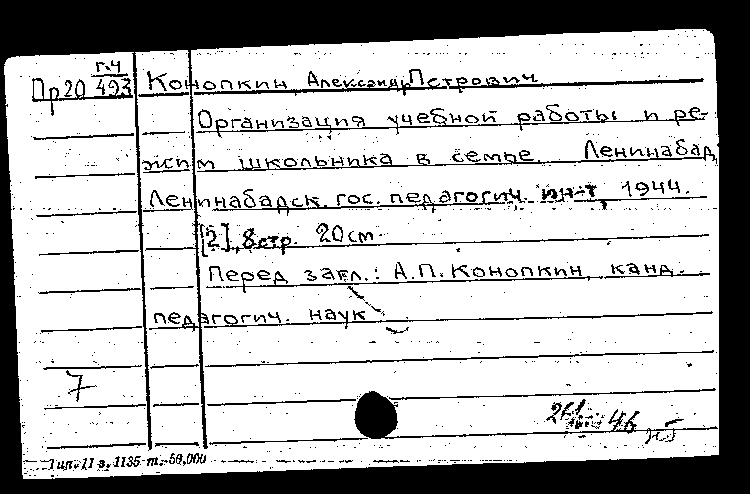 г.ч
Пр20 493 Конопкин, Александр Петрович
Организация учебной работы и ре-
жим школьника в семье. Ленинабад,
Ленинабадск. гос. педагогич. ин-т, 1944.
[2], 8 стр. 20 см.
Перед загл.: А.П. Конопкин, канд.
педагогич. наук
7
46
Тип. 11 з. 1135 т. 50,000